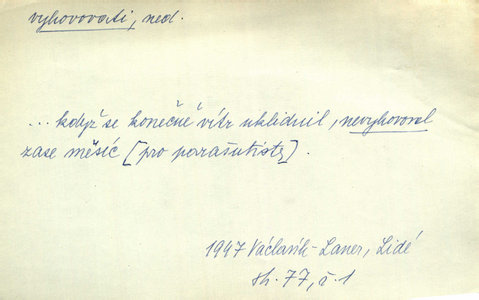 vyhovovati, ned.
... když se konečně vítr uklidnil, nevyhovoval
zase měsíc [pro parašutisty].
1947 Václavík-Laner, Lidé
str. 77, ř. 1